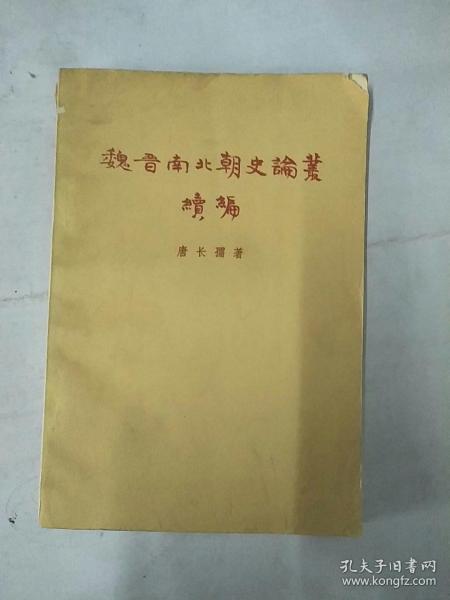 魏晋南北朝史論叢
續編
唐长孺著
孔夫子旧书网
www.kongfz.com